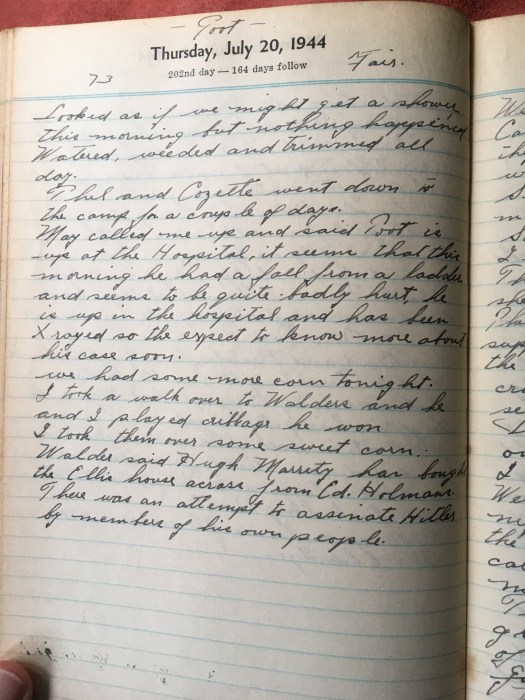 — Toot —
Thursday, July 20, 1944
202nd day — 164 days follow
73
Fair.
Looked as if we might get a shower
this morning but nothing happened
Watered, weeded and trimmed all
day.
Phil and Cozette went down to
the camp for a couple of days.
May called me up and said Toot is
up at the Hospital, it seems that this
morning he had a fall from a ladder
and seems to be quite badly hurt, he
is up in the hospital and has been
X rayed so the expect to know more about
his case soon.
we had some more corn tonight.
I took a walk over to Walders and he
and I played cribbage he won
I took them over some sweet corn.
Walder said Hugh Marrity has bought
the Ellis house across from Ed. Holmans.
There was an attempt to assinate Hitler
by members of his own people.